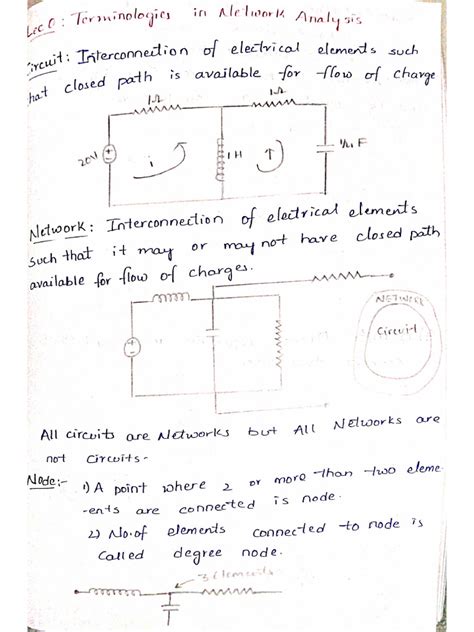 Lec 0 : Terminologies in Network Analysis
Circuit : Interconnection of electrical elements such
that closed path is available for flow of charge
1Ω 1Ω
20V i 1H F
Network : Interconnection of electrical elements
such that it may or may not have closed path
available for flow of charges.
NETWORK
Circuit
All circuits are Networks but All Networks are
not Circuits-
Node:- 1) A point where 2 or more than two eleme
-ents are connected is node.
2) No.of elements connected to node is
called degree node.
3 Elements